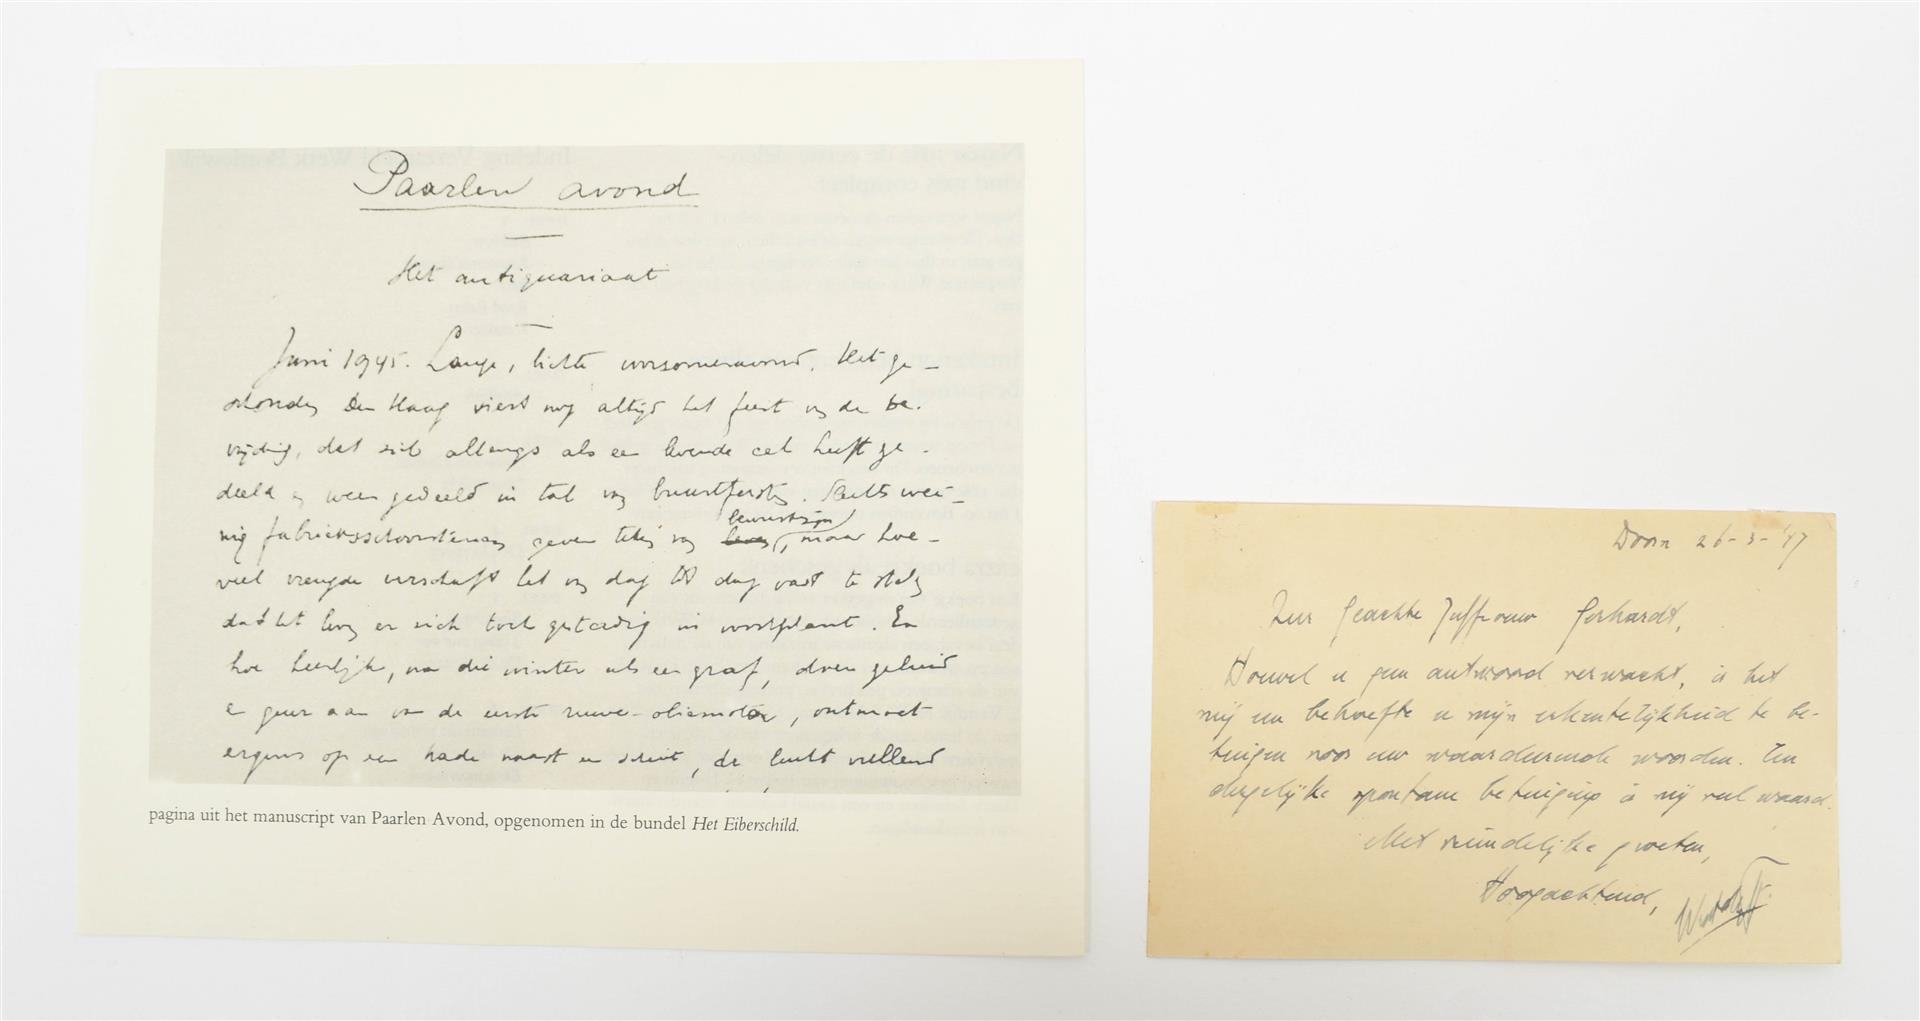 Paarlen avond
Het antiquariaat
Juni 1945. Lange, lichte voorzomeravond. Het ge-
schonden Den Haag viert nog altijd het feest van de be-
vrijding, dat zich allengs als een levende cel heeft ge-
deeld en weer gedeeld in tal van buurtfeesten. Slechts wei-
bewustzijn
nig fabrieksschoorstenen geven teken van leven, maar hoe-
veel vreugde verschaft het van dag tot dag vast te stellen
dat het leven er zich toch gestadig in voortplant. En
hoe heerlijk, na die winter als een graf, alweer geluid
en geur aan van de eerste ruwe-oliemotor, ontmoet
ergens op een kade naast een schuit, de lucht vullend
pagina uit het manuscript van Paarlen Avond, opgenomen in de bundel Het Eiberschild.
Doorn 26-3-'47
Zeer geachte Juffrouw Gerhardt,
Hoewel u geen antwoord verwacht, is het
mij een behoefte u mijn erkentelijkheid te be-
tuigen voor uw waardeerende woorden. Een
dergelijke spontane betuiging is mij veel waard.
Met vriendelijke groeten,
Hoogachtend,